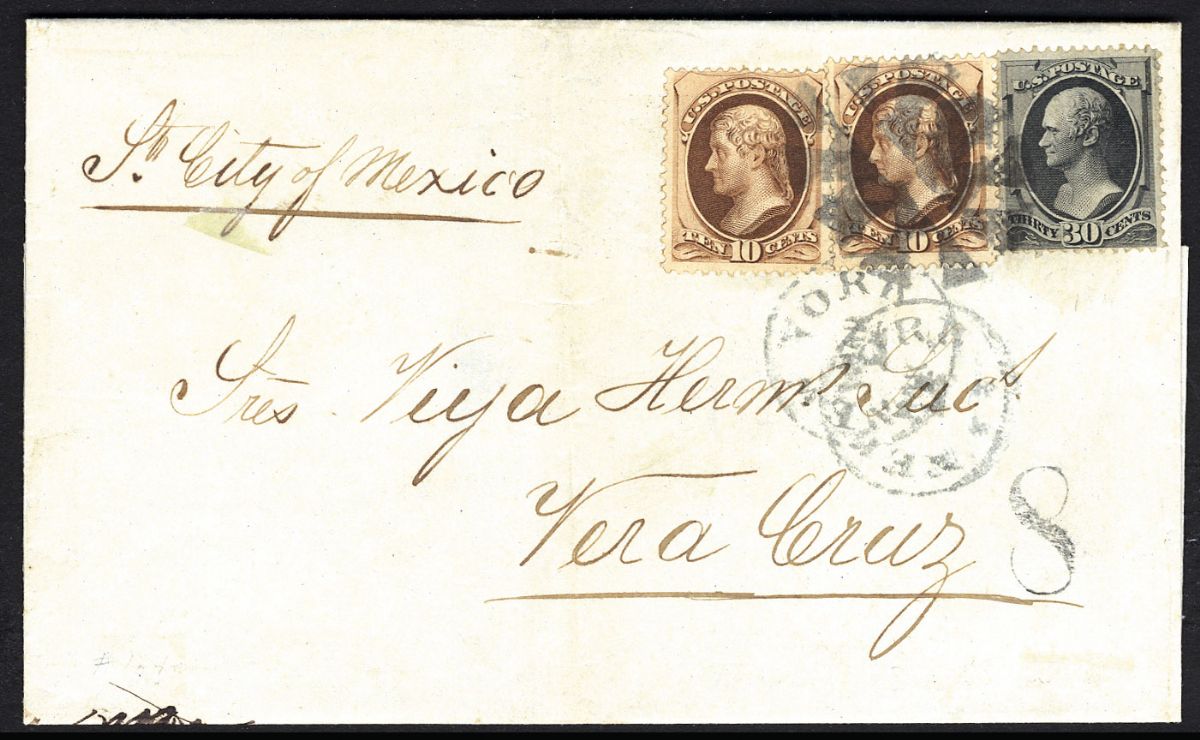 Str. City of Mexico
U.S. POSTAGE
TEN 10 CENTS
U.S. POSTAGE
TEN 10 CENTS
U.S. POSTAGE
THIRTY 30 CENTS
YORK
NEW
Sres Viya Hermo Sucs
Vera Cruz
8